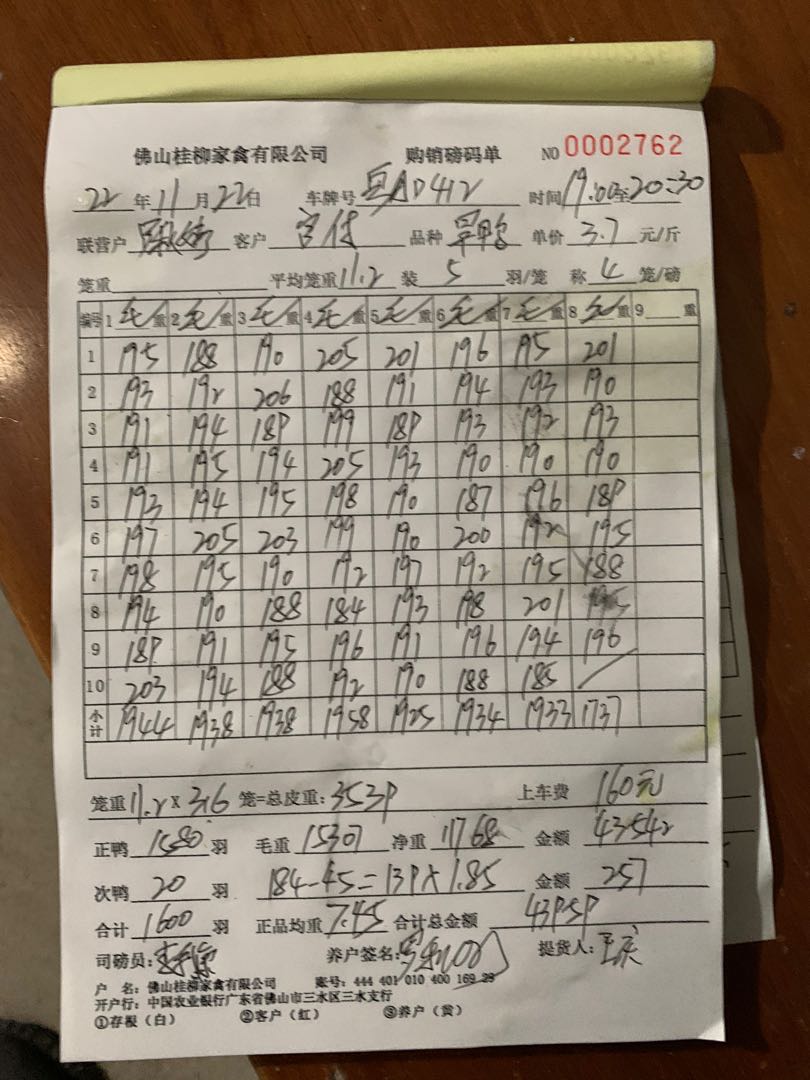 佛山桂柳家禽有限公司 购销磅码单 NO 0002762
22 年 11 月 22 日 车牌号 AD412 时间 19:00至20:30
联营户 客户 品种 单价 3.7 元/斤
笼重 平均笼重 11.2 装 5 羽/笼 称 4 笼/磅
编号 1 毛重 2 毛重 3 毛重 4 毛重 5 毛重 6 毛重 7 毛重 8 毛重 9 重
1 195 188 190 205 201 196 195 201
2 193 192 206 188 191 194 193 190
3 191 194 189 199 189 193 192 193
4 191 195 194 205 193 190 190 190
5 193 194 195 198 190 187 196 189
6 197 205 203 199 190 200 192 195
7 198 195 190 192 197 192 195 188
8 194 190 188 184 193 198 201 195
9 189 191 195 196 191 196 194 196
10 203 194 188 192 190 188 185 /
小计 1944 1938 1938 1958 1925 1934 1933 1737
笼重 11.2 X 316 笼=总皮重: 3539 上车费 160元
正鸭 1580 羽 毛重 15307 净重 11768 金额 43542
次鸭 20 羽 184-45=139×1.85 金额 257
合计 1600 羽 正品均重 7.45 合计总金额 43959
司磅员: 养户签名: 提货人:
户 名: 佛山桂柳家禽有限公司 账号: 444 401 010 400 169 29
开户行: 中国农业银行广东省佛山市三水区三水支行
①存根(白) ②客户(红) ③养户(黄)